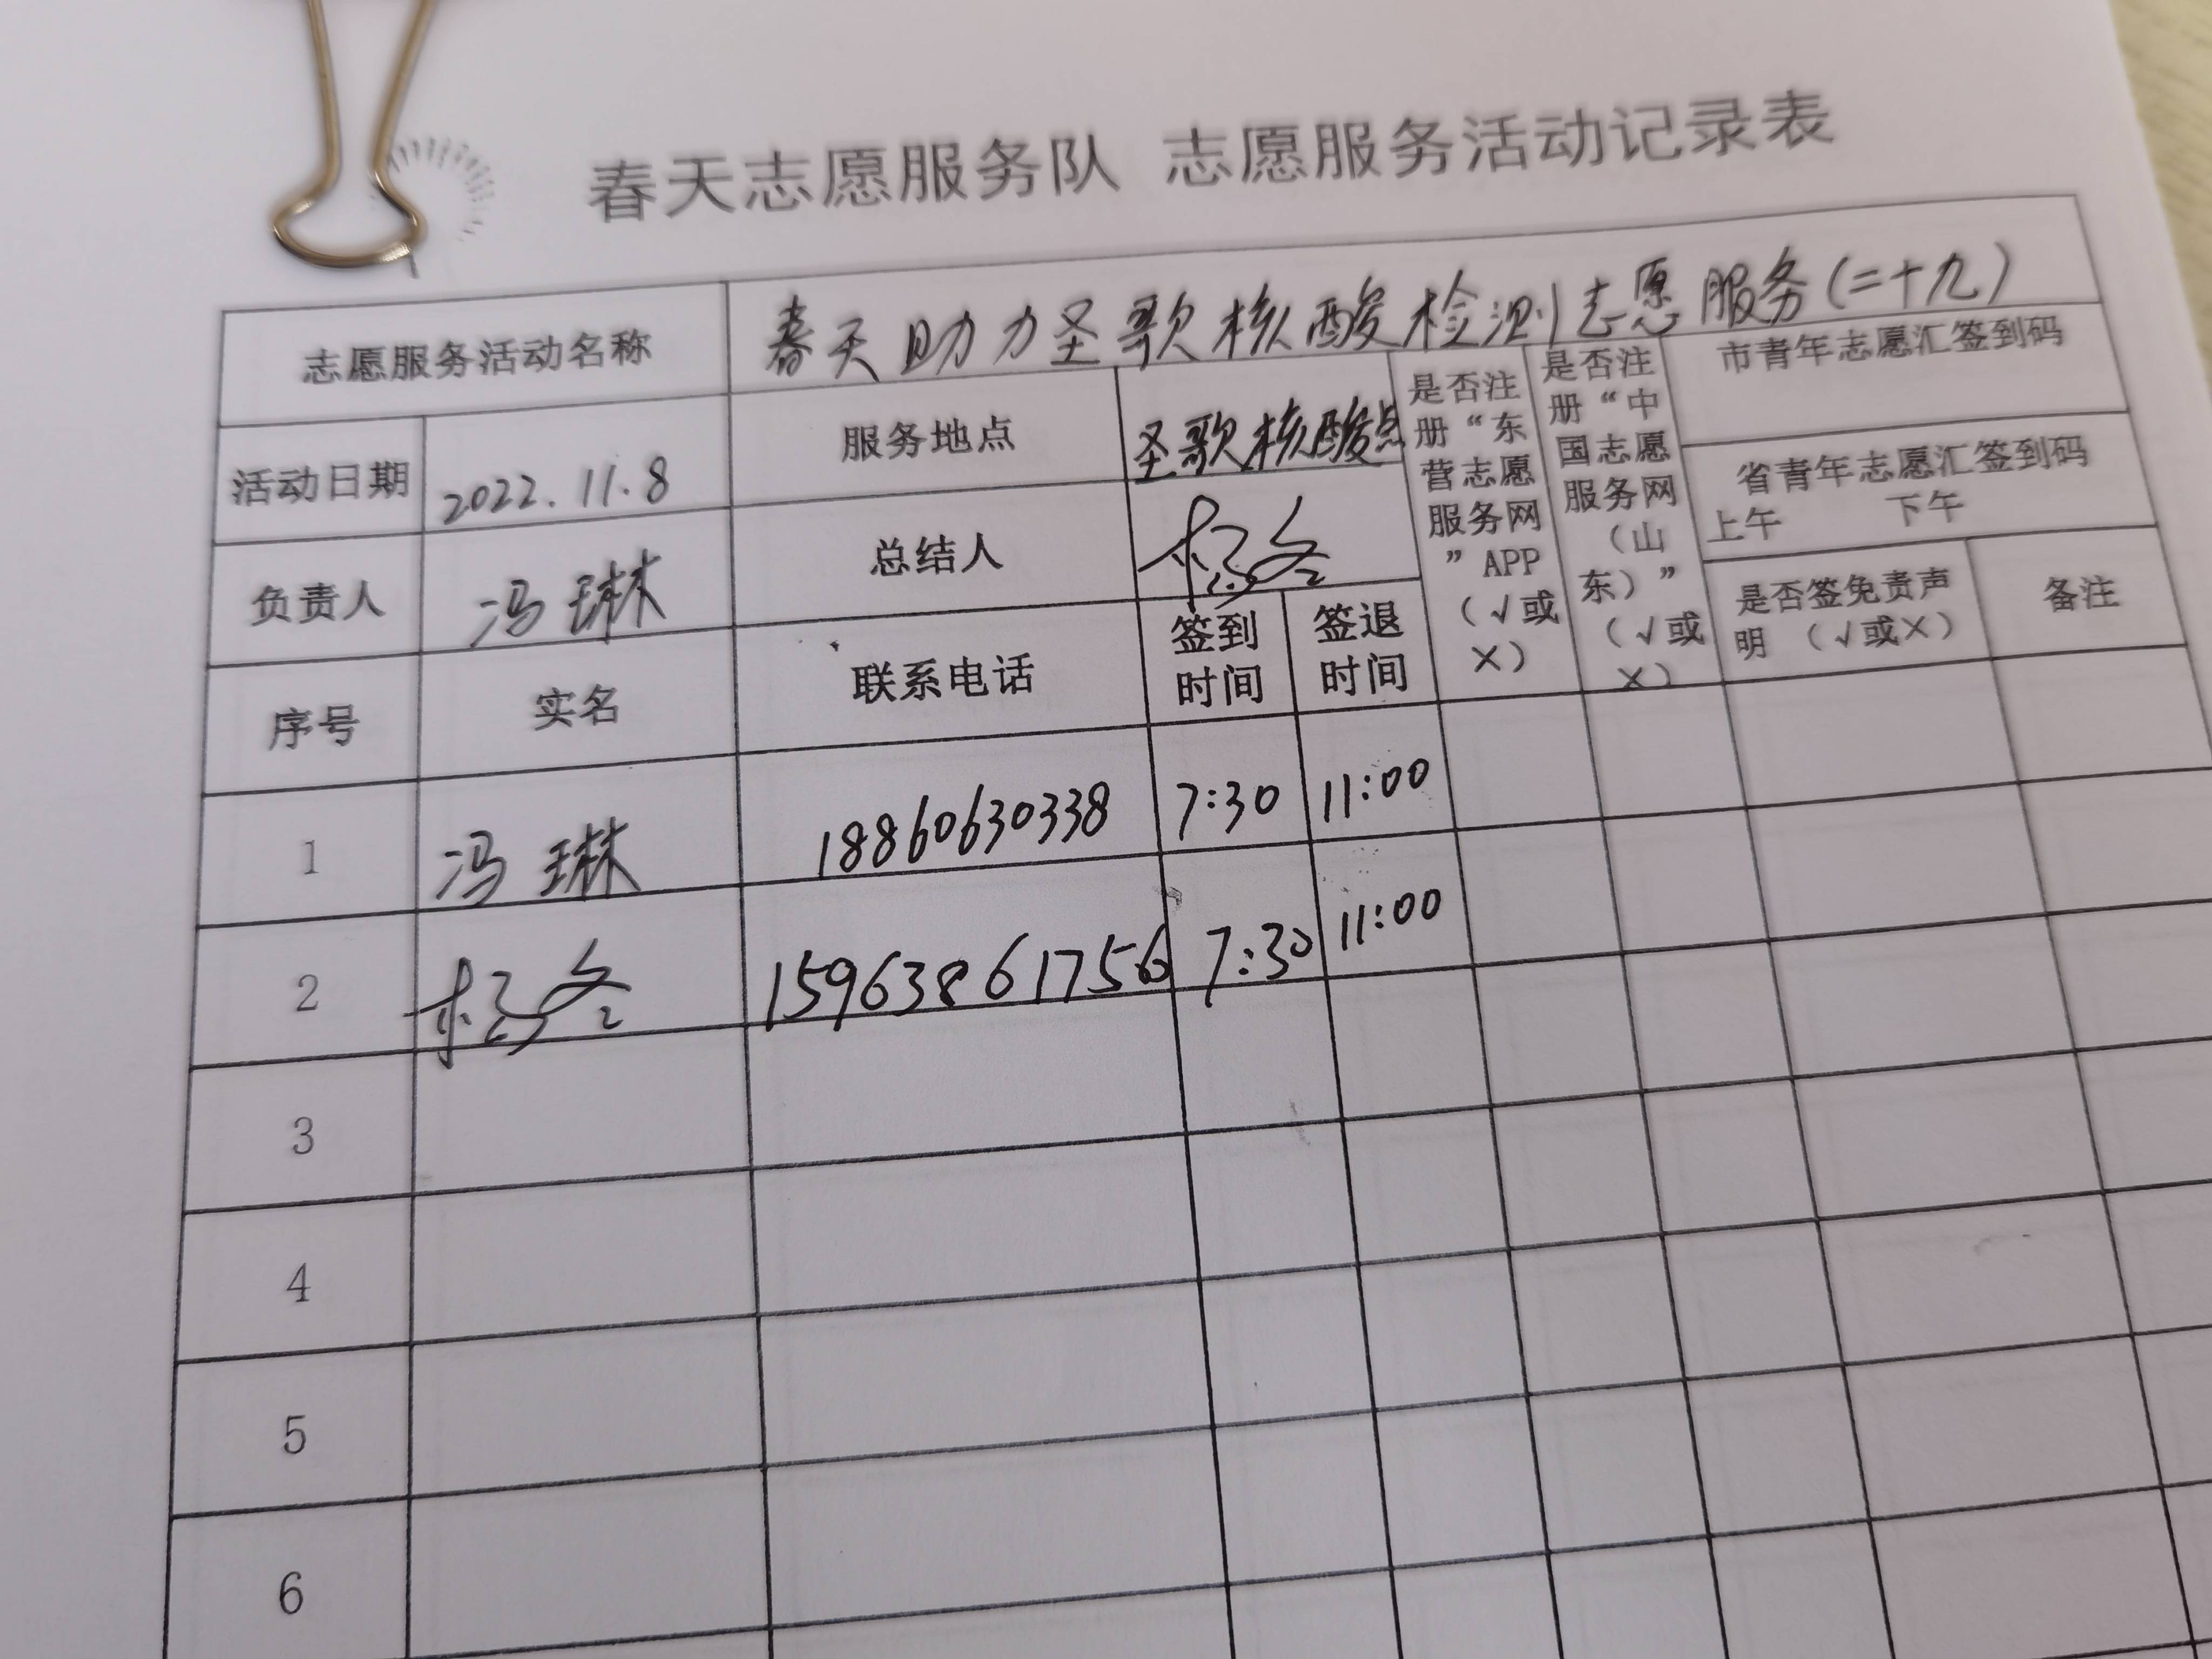 春天志愿服务队 志愿服务活动记录表
志愿服务活动名称 春天助力圣歌核酸检测志愿服务(二十九)
活动日期 2022.11.8 服务地点 圣歌核酸点
是否注册“东营志愿服务网”APP（√或×）
是否注册“中国志愿服务网（山东）”（√或×）
市青年志愿汇签到码
省青年志愿汇签到码
上午 下午
负责人 冯琳 总结人 杨冬
是否签免责声明 （√或×） 备注
序号 实名 联系电话 签到时间 签退时间
1 冯琳 18860630338 7:30 11:00
2 杨冬 15963861756 7:30 11:00
3
4
5
6